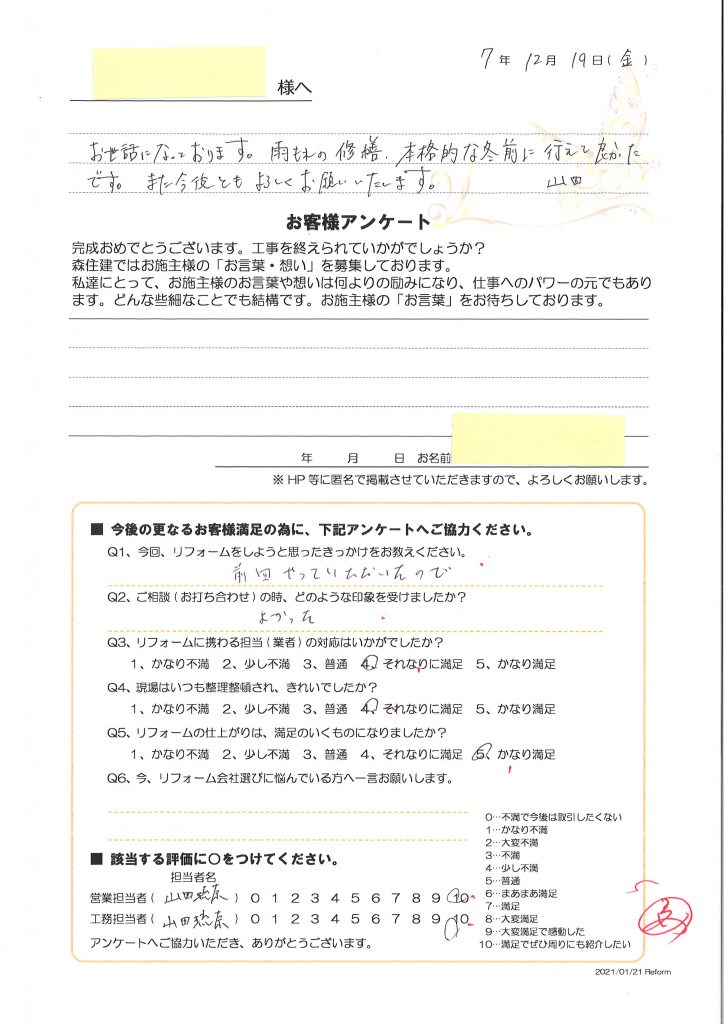 7年 12月 19日(金)
様へ
お世話になっております。雨もれの修繕、本格的な冬前に行えて良かった
です。また今後ともよろしくお願いいたします。 山田
お客様アンケート
完成おめでとうございます。工事を終えられていかがでしょうか？
森住建ではお施主様の「お言葉・想い」を募集しております。
私達にとって、お施主様のお言葉や想いは何よりの励みになり、仕事へのパワーの元でもあり
ます。どんな些細なことでも結構です。お施主様の「お言葉」をお待ちしております。
年 月 日 お名前
※HP等に匿名で掲載させていただきますので、よろしくお願いします。
■ 今後の更なるお客様満足の為に、下記アンケートへご協力ください。
Q1、今回、リフォームをしようと思ったきっかけをお教えください。
前回やっていただいたので
Q2、ご相談(お打ち合わせ)の時、どのような印象を受けましたか？
よかった
Q3、リフォームに携わる担当(業者)の対応はいかがでしたか？
1、かなり不満 2、少し不満 3、普通 4、それなりに満足 5、かなり満足
Q4、現場はいつも整理整頓され、きれいでしたか？
1、かなり不満 2、少し不満 3、普通 4、それなりに満足 5、かなり満足
Q5、リフォームの仕上がりは、満足のいくものになりましたか？
1、かなり不満 2、少し不満 3、普通 4、それなりに満足 5、かなり満足
Q6、今、リフォーム会社選びに悩んでいる方へ一言お願いします。
■ 該当する評価に○をつけてください。
担当者名
営業担当者( 山田 ) 0 1 2 3 4 5 6 7 8 9 10
工務担当者( 山田 ) 0 1 2 3 4 5 6 7 8 9 10
アンケートへご協力いただき、ありがとうございます。
0…不満で今後は取引したくない
1…かなり不満
2…大変不満
3…不満
4…少し不満
5…普通
6…まあまあ満足
7…満足
8…大変満足
9…大変満足で感動した
10…満足でぜひ周りにも紹介したい
2021/01/21 Reform